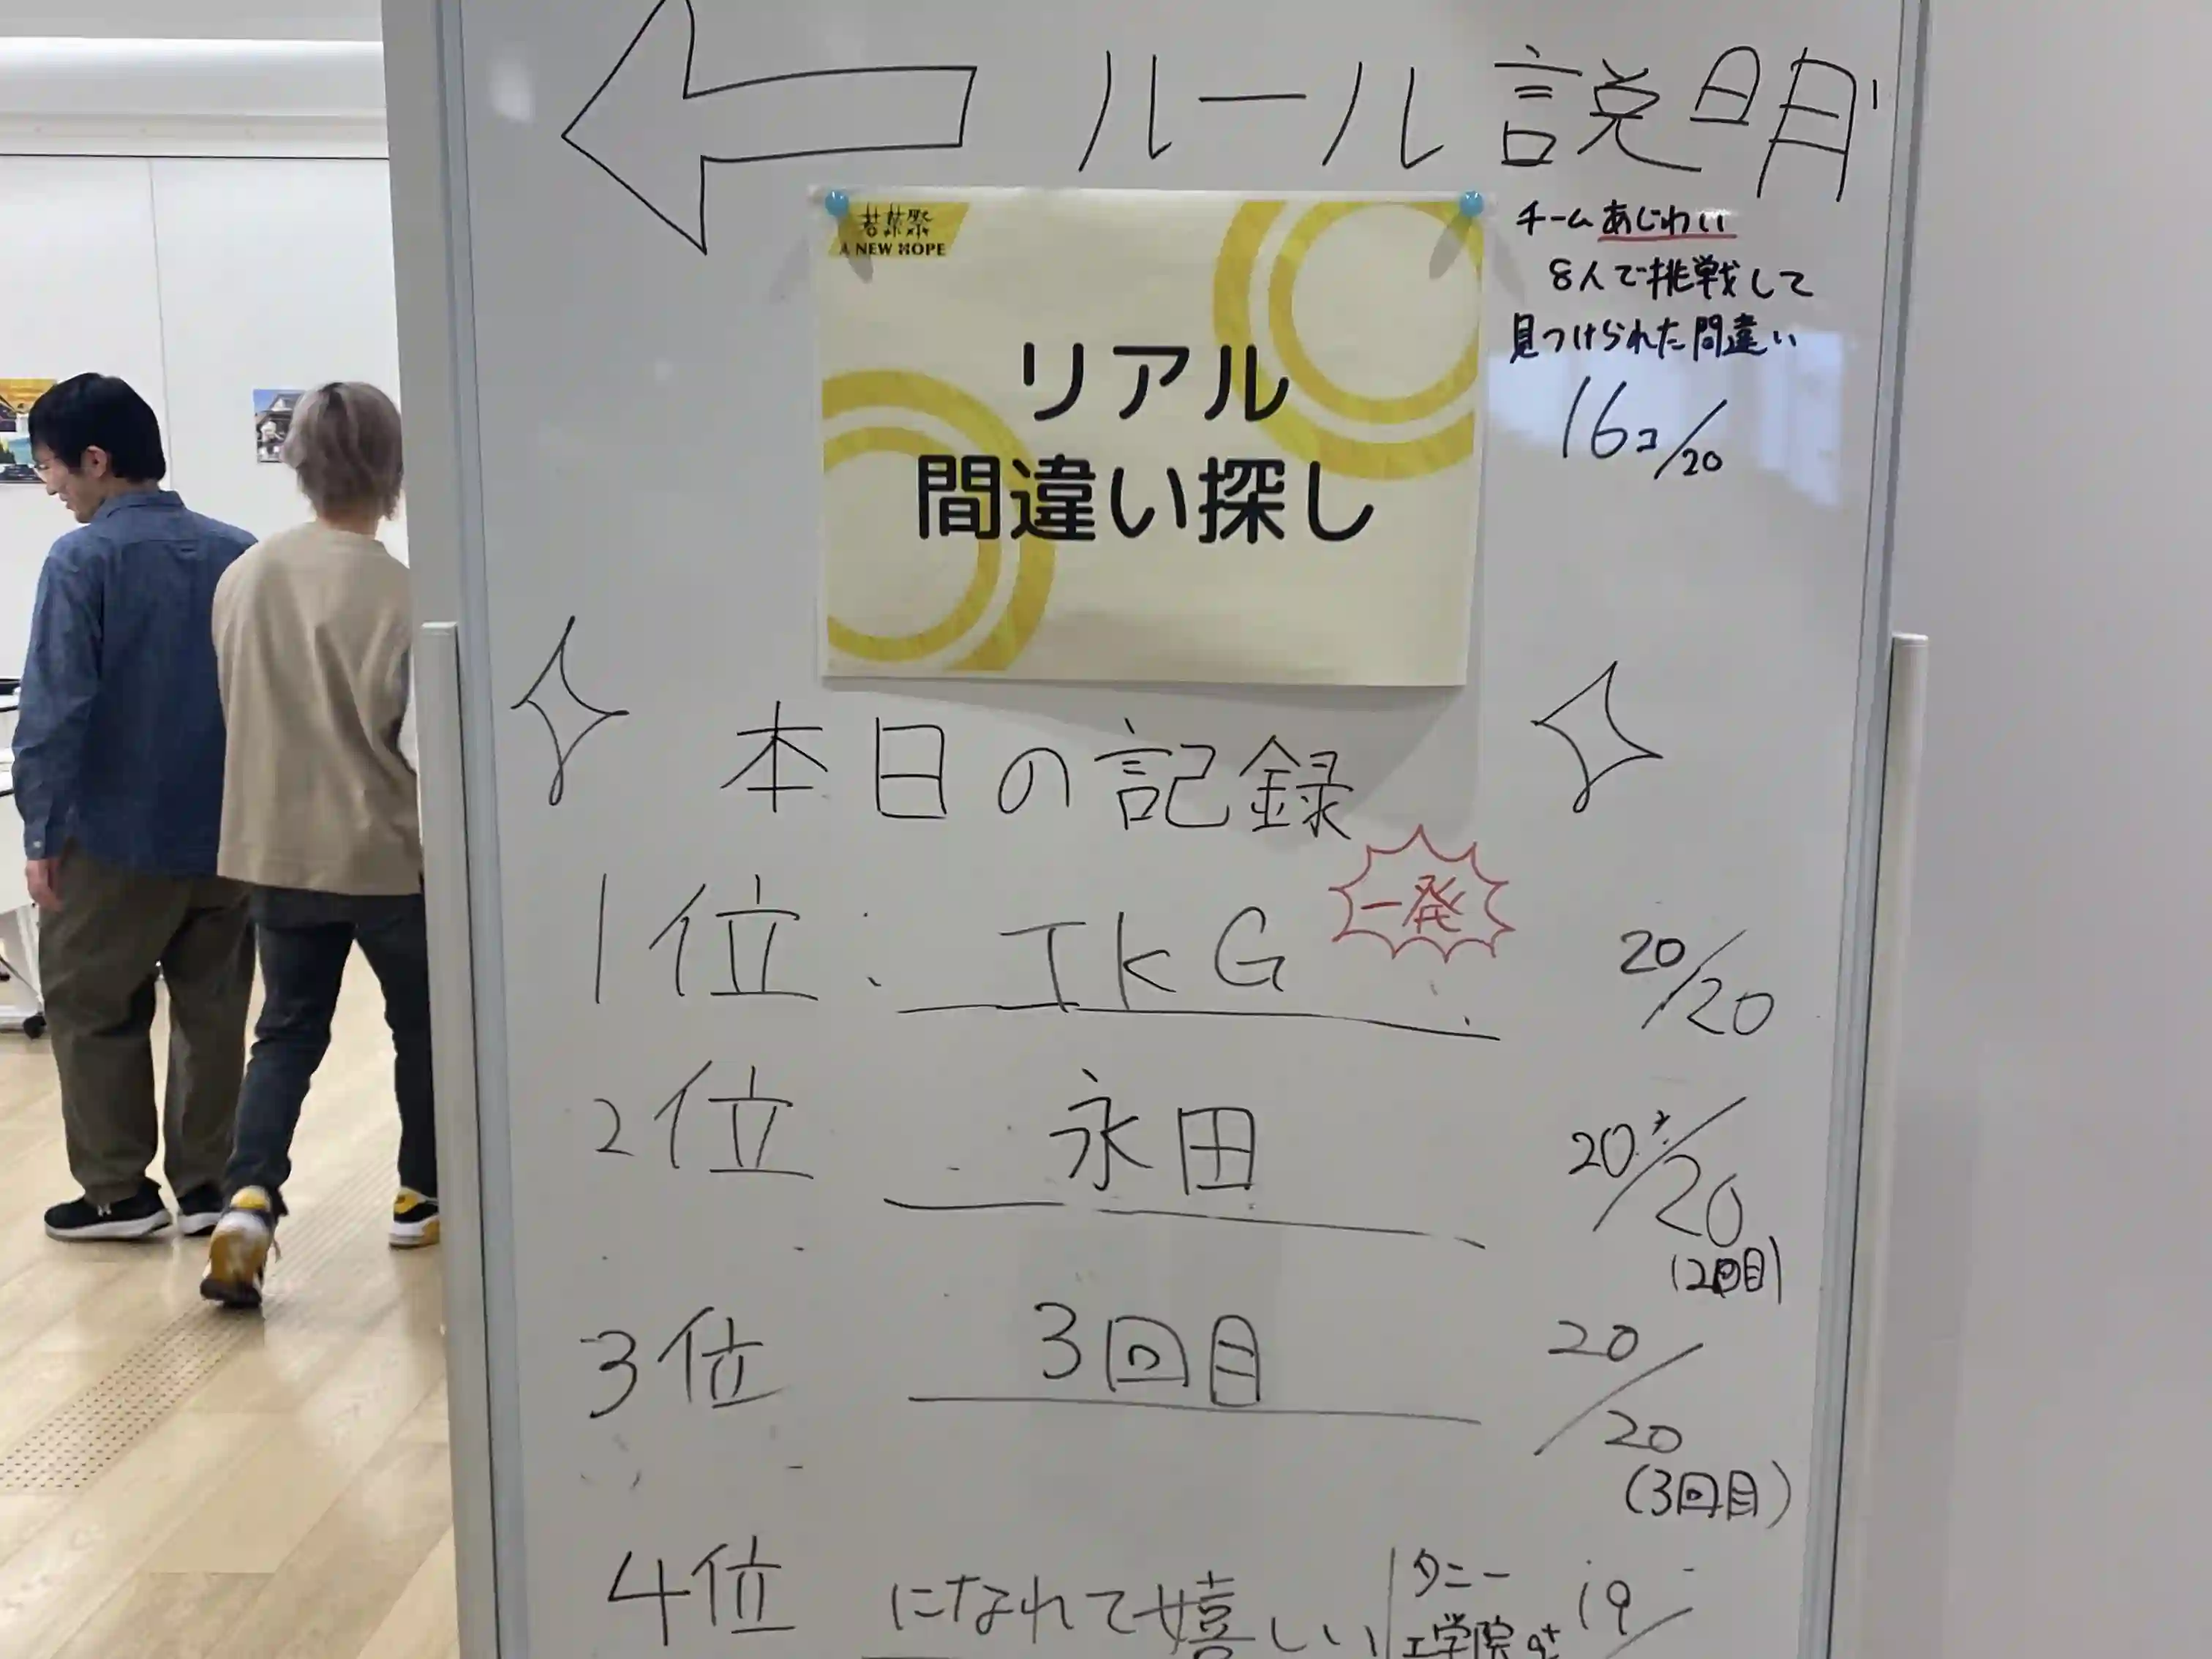 ルール説明
若葉祭
A NEW HOPE
リアル
間違い探し
チームあじわい
8人で挑戦して
見つけられた間違い
16コ/20
本日の記録
1位: IKG 一発 20/20
2位 永田 20/20
(2回目)
3位 3回目 20/20
(3回目)
4位 になれて嬉しい タニー 19/
工学院